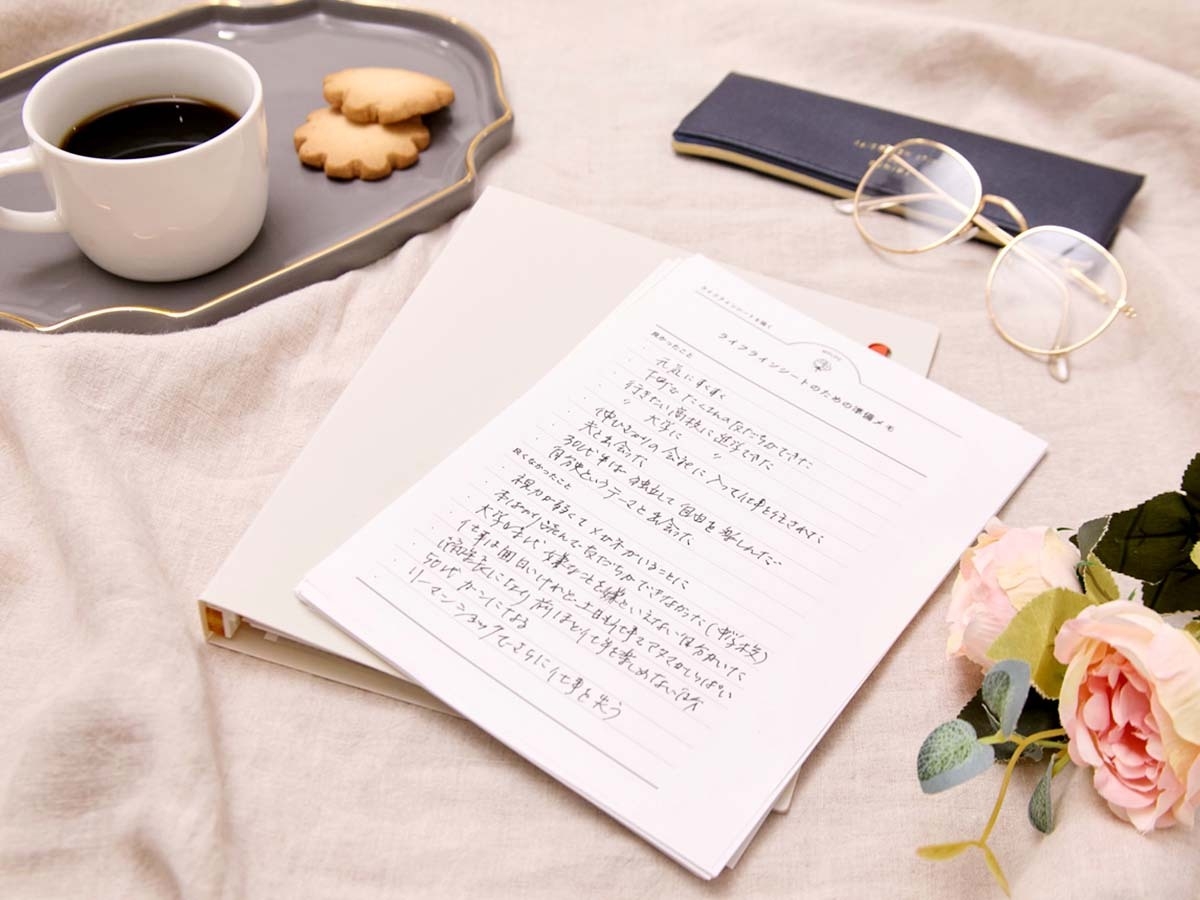 ライフラインシートを描く
ライフラインシートのための準備メモ
良かったこと
・元気にすくすく
・下町でたくさんの友だちができた
・行きたい高校に進学できた
・〃 大学に 〃
・使いきりの会社に入って仕事を任されて
・夫と出会った
・30代半ばに独立して自由を楽しんだ
・自分史というテーマと出会った
良くなかったこと
・視力が弱くてメガネがいることに
・本ばかり読んで友だちができなかった(中学校)
・大学時代、嫌なことを嫌といえない自分がいた
・仕事は面白いけれど、土日も仕事で
・に なり 前ほど仕事を楽しめない
・50代 ガンになる
・リーマンショックでさらに仕事を失う